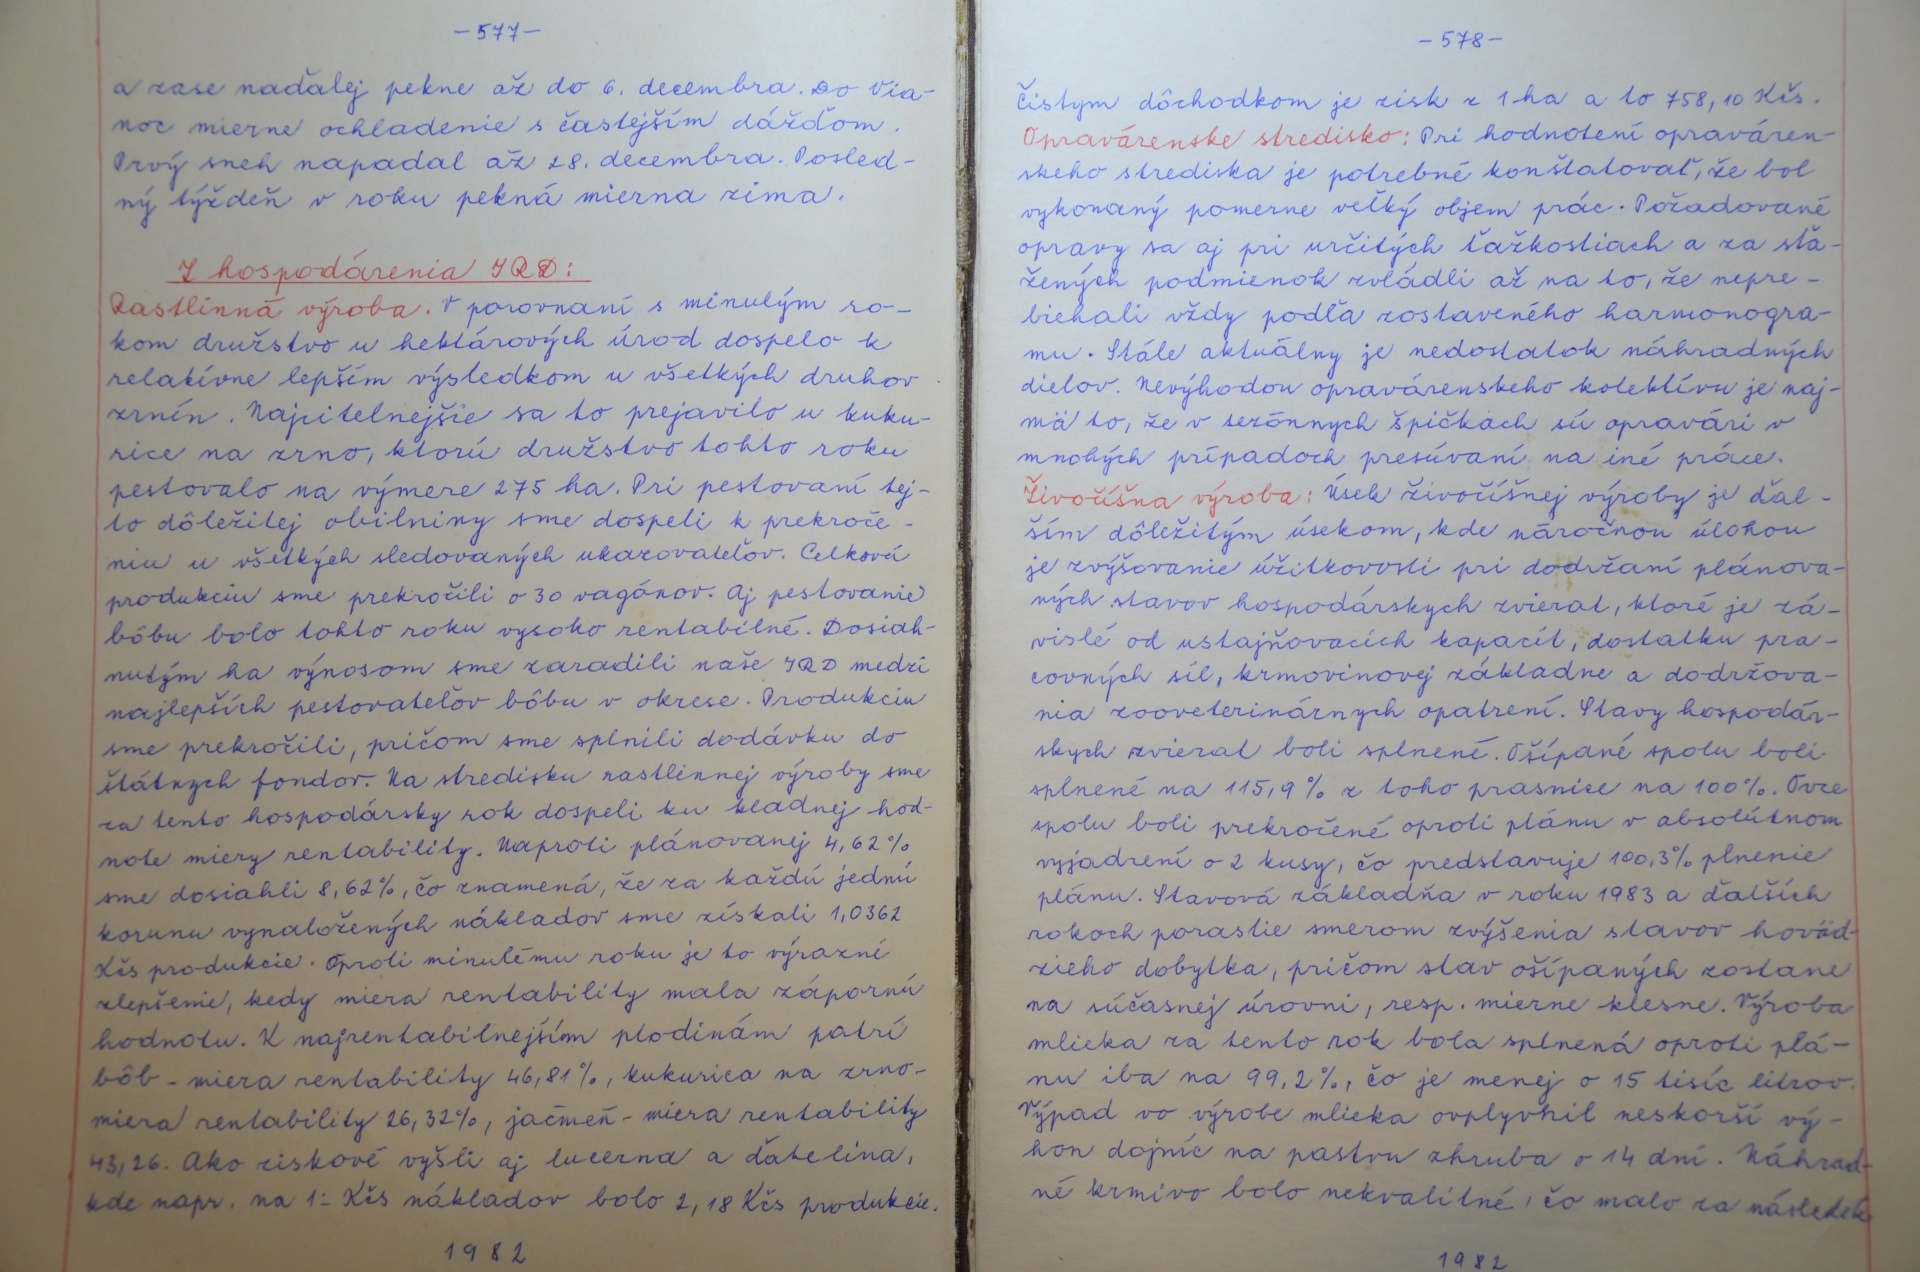 -577-
a zase naďalej pekne až do 6. decembra. Do Via-
noc mierne ochladenie s častejším dážďom.
Prvý sneh napadal až 28. decembra. Posled-
ný týždeň v roku pekná mierna zima.
Z hospodárenia JRD:
Rastlinná výroba. V porovnaní s minulým ro-
kom družstvo u hektárových úrod dospelo k
relatívne lepším výsledkom u všetkých druhov
zrnín. Najcitelnejšie sa to prejavilo u kuku-
rice na zrno, ktorú družstvo tohto roku
pestovalo na výmere 275 ha. Pri pestovaní tej-
to dôležitej obilniny sme dospeli k prekroče-
niu u všetkých sledovaných ukazovateľov. Celkovú
produkciu sme prekročili o 30 vagónov. Aj pestovanie
bôbu bolo tohto roku vysoko rentabilné. Dosiah-
nutým ha výnosom sme zaradili naše JRD medzi
najlepších pestovateľov bôbu v okrese. Produkciu
sme prekročili, pričom sme splnili dodávku do
štátnych fondov. Na stredisku rastlinnej výroby sme
za tento hospodársky rok dospeli ku kladnej hod-
note miery rentability. Naproti plánovanej 4,62%
sme dosiahli 8,62%, čo znamená, že za každú jednú
korunu vynaložených nákladov sme získali 1,0362
Kčs produkcie. Oproti minulému roku je to výrazné
zlepšenie, kedy miera rentability mala zápornú
hodnotu. K najrentabilnejším plodinám patrí
bôb - miera rentability 46,81%, kukurica na zrno-
miera rentability 26,32%, jačmeň - miera rentability
43,26. Ako ziskové vyšli aj lucerna a ďatelina,
kde napr. na 1.- Kčs nákladov bolo 2,18 Kčs produkcie.
1982
-578-
čistým dôchodkom je zisk z 1 ha a to 758,10 Kčs.
Opravárenske stredisko: Pri hodnotení opraváren-
skeho strediska je potrebné konštatovať, že bol
vykonaný pomerne veľký objem prác. Požadované
opravy sa aj pri určitých ťažkostiach a za sťa-
žených podmienok zvládli až na to, že nepre-
biehali vždy podľa zostaveného harmonogra-
mu. Stále aktuálny je nedostatok náhradných
dielov. Nevýhodou opravárenskeho kolektívu je naj-
mä to, že v sezónnych špičkách sú opravári v
mnohých prípadoch presúvaní na iné práce.
Živočíšna výroba: Úsek živočíšnej výroby je ďal-
ším dôležitým úsekom, kde náročnou úlohou
je zvýšovanie úžitkovosti pri dodržaní plánova-
ných stavov hospodárskych zvierat, ktoré je zá-
vislé od ustajňovacích kapacít, dostatku pra-
covných síl, krmovinovej základne a dodržova-
nia zooveterinárnych opatrení. Stavy hospodár-
skych zvierat boli splnené. Ošípané spolu boli
splnené na 115,9% z toho prasnice na 100%. Ovce
spolu boli prekročené oproti plánu v absolútnom
vyjadrení o 2 kusy, čo predstavuje 100,3% plnenie
plánu. Stavová základňa v roku 1983 a ďalších
rokoch porastie smerom zvýšenia stavov hoväd-
zieho dobytka, pričom stav ošípaných zostane
na súčasnej úrovni, resp. mierne klesne. Výroba
mlieka za tento rok bola splnená oproti plá-
nu iba na 99,2%, čo je menej o 15 tisíc litrov.
Výpad vo výrobe mlieka ovplyvnil neskorší vý-
hon dojníc na pastvu zhruba o 14 dní. Náhrad-
né krmivo bolo nekvalitné, čo malo za následok
1982